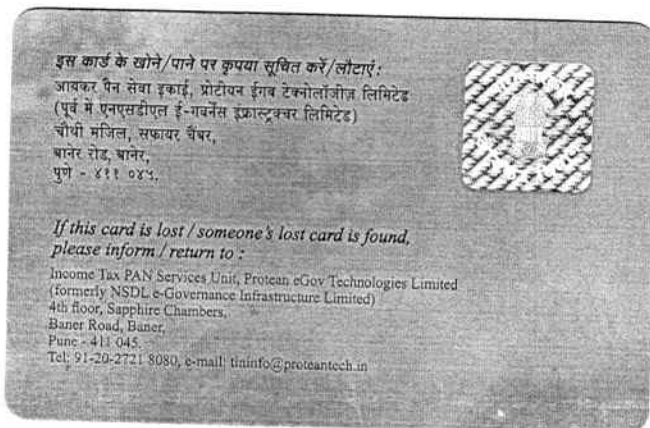 इस कार्ड के खोने/पाने पर कृपया सूचित करें/लौटाएं:
आयकर पैन सेवा इकाई, प्रोटीयन ईगव टेक्नोलॉजीज़ लिमिटेड
(पूर्व में एनएसडीएल ई-गवर्नेंस इंफ्रास्ट्रक्चर लिमिटेड)
चौथी मंजिल, सफायर चैंबर,
बानेर रोड, बानेर,
पुणे - ४११ ०४५.
If this card is lost / someone's lost card is found,
please inform / return to :
Income Tax PAN Services Unit, Protean eGov Technologies Limited
(formerly NSDL e-Governance Infrastructure Limited)
4th floor, Sapphire Chambers,
Baner Road, Baner,
Pune - 411 045.
Tel: 91-20-2721 8080, e-mail: tininfo@proteantech.in